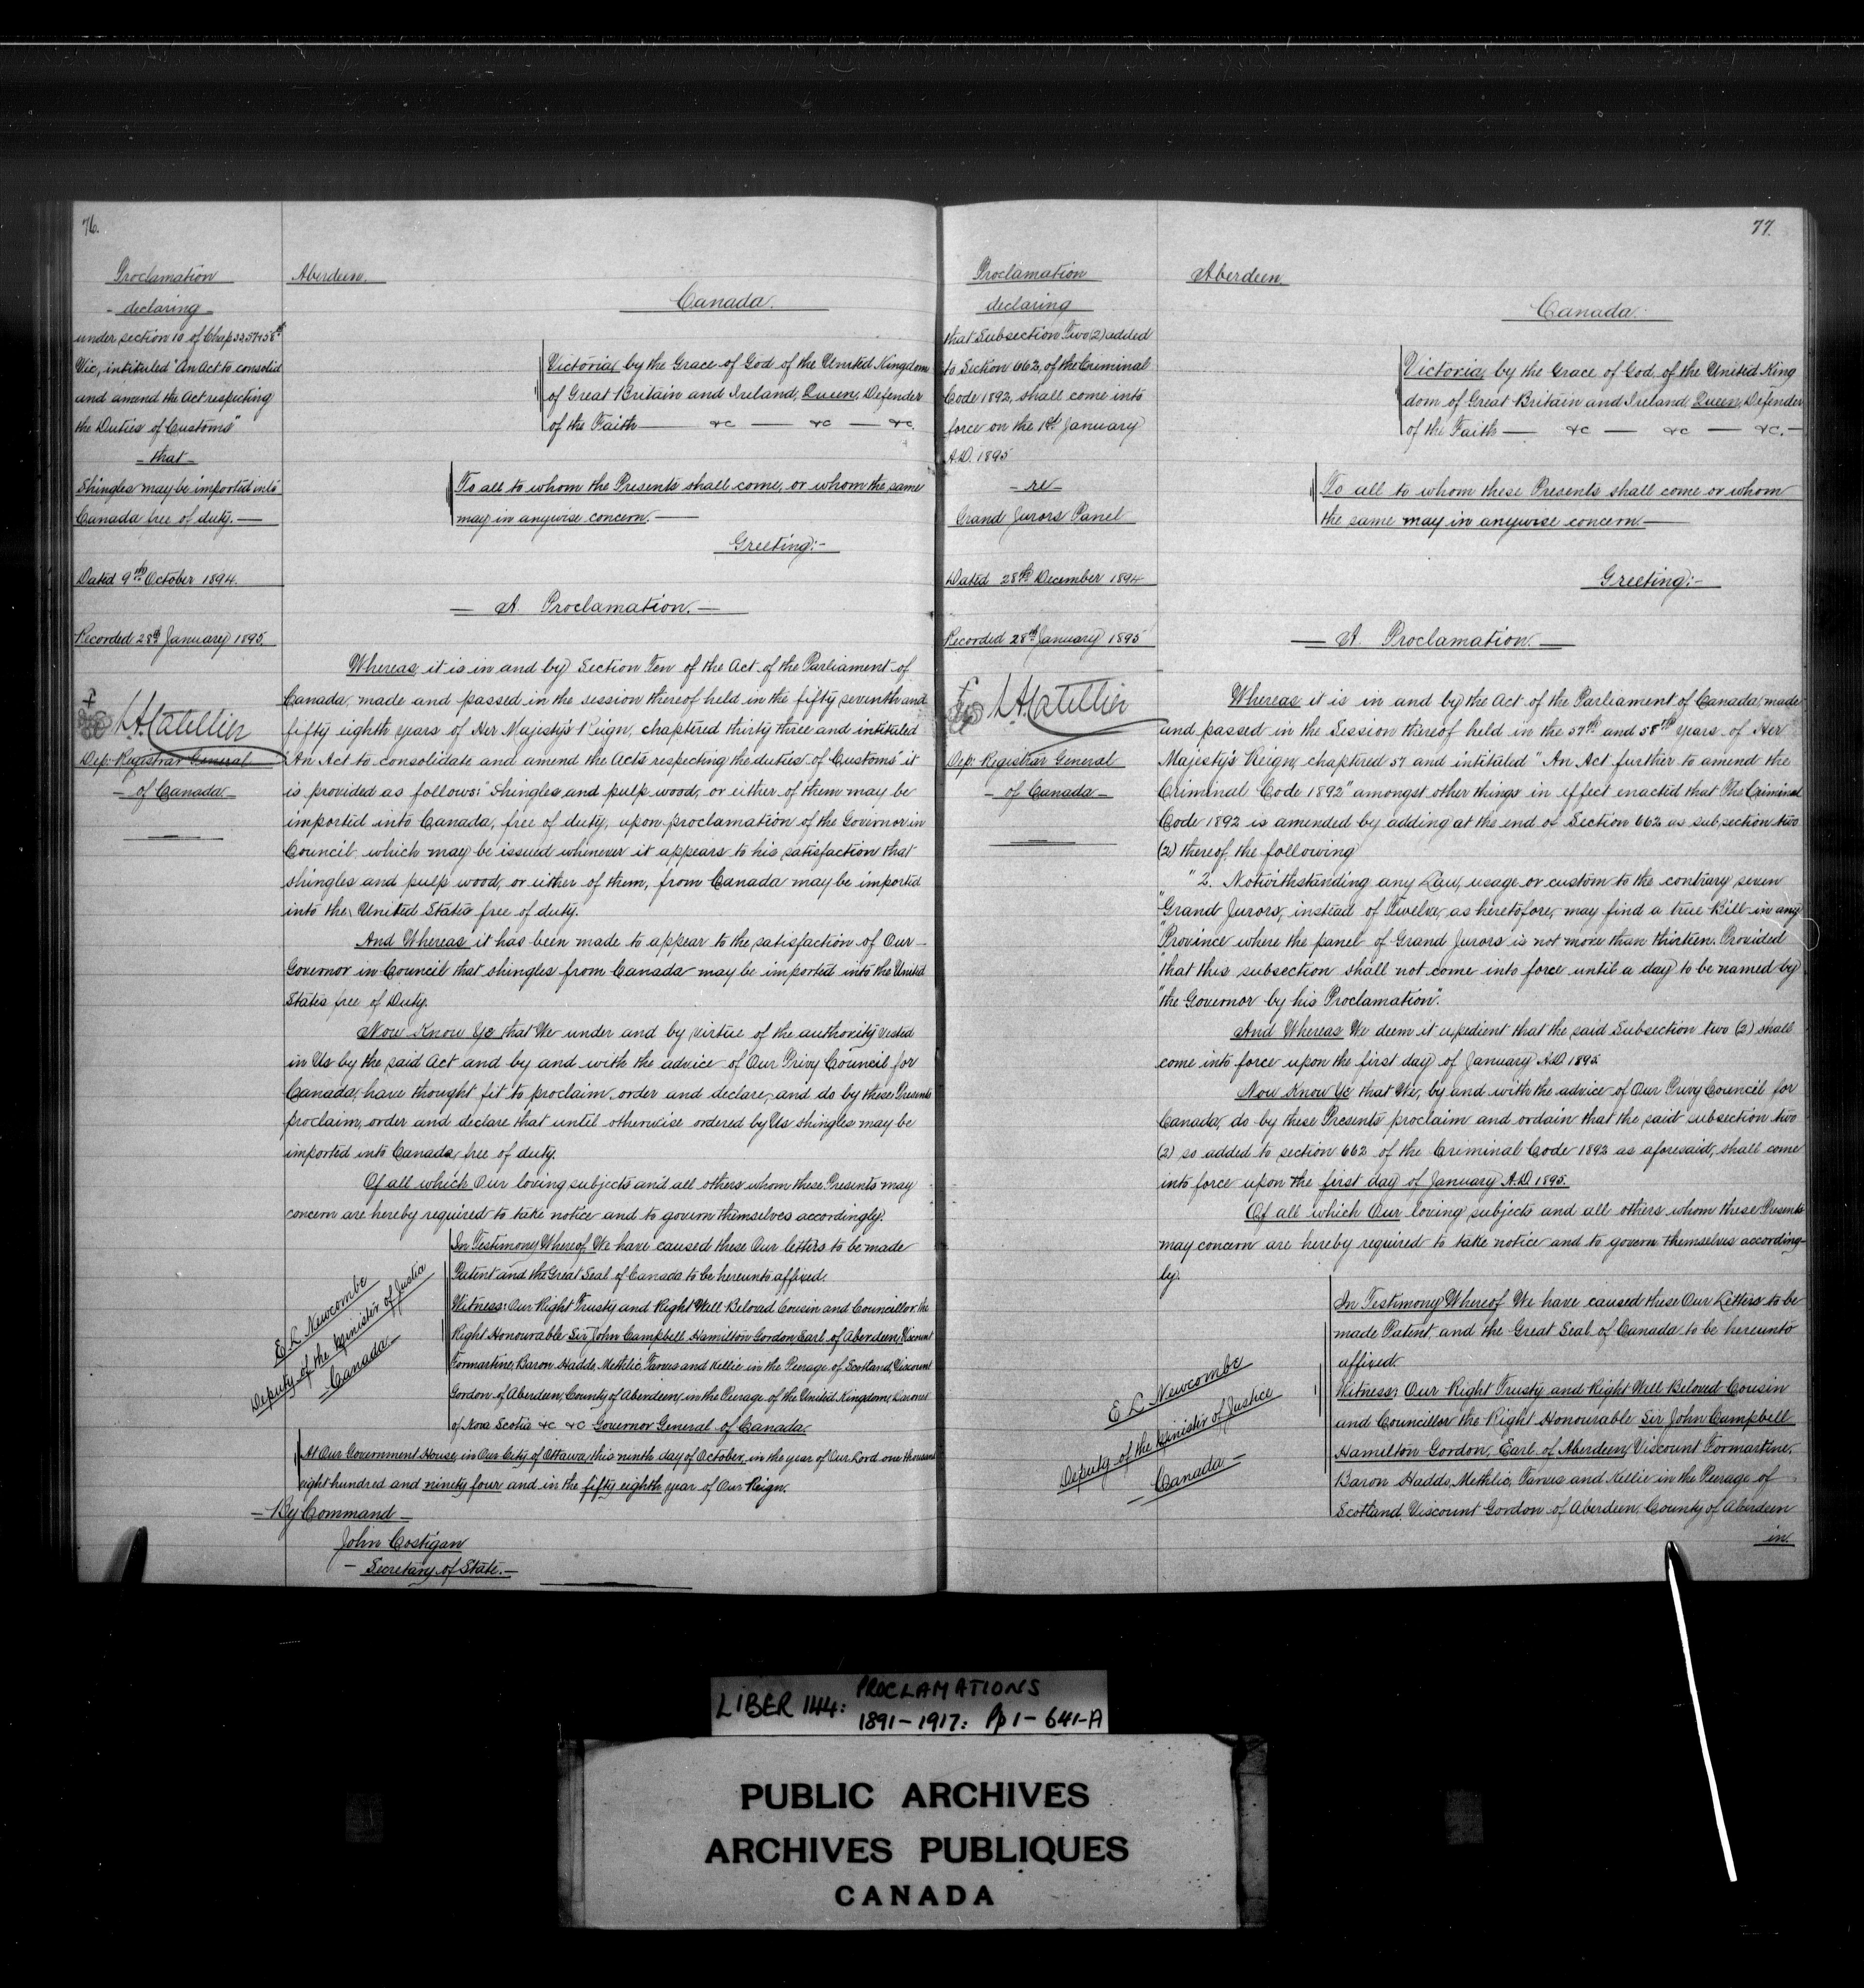 76.
Proclamation
- declaring -
under section 10 of Chap 33 57 & 58th
Vic, intituled "An Act to consolid
and amend the Act respecting
the Duties of Customs"
- that -
Shingles may be imported into
Canada free of duty. —
Dated 9th October 1894.
Recorded 28th January 1895.
L.A. Catellier
Dep: Registrar General
- of Canada -
Aberdeen.
Canada.
Victoria, by the Grace of God of the United Kingdom
of Great Britain and Ireland, Queen, Defender
of the Faith — &c — &c — &c.
To all to whom the Presents shall come, or whom the same
may in anywise concern. —
Greeting:-
— A Proclamation. —
Whereas it is in and by Section Ten of the Act of the Parliament of
Canada, made and passed in the session thereof held in the fifty seventh and
fifty eighth years of Her Majesty's Reign, chaptered thirty three and intituled
"An Act to consolidate and amend the Acts respecting the duties of Customs" it
is provided as follows: "Shingles and pulp wood, or either of them may be
imported into Canada, free of duty, upon proclamation of the Governor in
Council which may be issued whenever it appears to his satisfaction that
shingles and pulp wood, or either of them, from Canada may be imported
into the United States free of duty.
And Whereas it has been made to appear to the satisfaction of Our —
Governor in Council that shingles from Canada may be imported into the United
States free of Duty.
Now Know Ye that We under and by virtue of the authority vested
in Us by the said Act and by and with the advice of Our Privy Council for
Canada, have thought fit to proclaim, order and declare, and do by these Presents
proclaim, order and declare that until otherwise ordered by Us shingles may be
imported into Canada, free of duty.
Of all which Our loving subjects and all others whom these Presents may
concern are hereby required to take notice and to govern themselves accordingly.
In Testimony Whereof We have caused these Our letters to be made
Patent and the Great Seal of Canada to be hereunto affixed.
Witness: Our Right Trusty and Right Well Beloved Cousin and Councillor the
Right Honourable Sir John Campbell Hamilton Gordon Earl of Aberdeen, Viscount
Formartine, Baron Haddo, Methlic, Tarves and Kellie in the Peerage of Scotland, Viscount
Gordon of Aberdeen, County of Aberdeen, in the Peerage of the United Kingdom, Baronet
of Nova Scotia &c &c Governor General of Canada.
E L Newcombe
Deputy of the Minister of Justice
- Canada -
At Our Government House, in Our City of Ottawa, this ninth day of October, in the year of Our Lord one thousand
eight hundred and ninety four and in the fifty eighth year of Our Reign.
— By Command —
John Costigan
— Secretary of State. —
77.
Proclamation
declaring
that Subsection Two (2) added
to Section 662, of the Criminal
Code 1892, shall come into
force on the 1st January
A.D. 1895
- re -
Grand Jurors Panel
Dated 28th December 1894
Recorded 28th January 1895
L.A. Catellier
Dep: Registrar General
- of Canada -
Aberdeen.
Canada.
Victoria, by the Grace of God, of the United King
dom of Great Britain and Ireland Queen, Defender
of the Faith — &c — &c — &c. —
To all to whom these Presents shall come or whom
the same may in anywise concern —
Greeting:-
— A Proclamation. —
Whereas it is in and by the Act of the Parliament of Canada, made
and passed in the Session thereof held in the 57th and 58th years of Her
Majesty's Reign, chaptered 57 and intituled "An Act further to amend the
Criminal Code 1892" amongst other things in effect enacted that The Criminal
Code 1892 is amended by adding at the end of Section 662 as subsection two
(2) thereof, the following
"2. Notwithstanding any Law, usage or custom to the contrary seven
"Grand Jurors, instead of Twelve, as heretofore, may find a true Bill in any
"Province where the panel of Grand Jurors is not more than thirteen. Provided
"that this subsection shall not come into force until a day to be named by
"the Governor by his Proclamation".
And Whereas We deem it expedient that the said Subsection two (2) shall
come into force upon the first day of January A.D. 1895
Now Know Ye that We, by and with the advice of Our Privy Council for
Canada, do by these Presents proclaim and ordain that the said subsection two
(2) so added to section 662 of the Criminal Code 1892 as aforesaid, shall come
into force upon the first day of January A.D. 1895.
Of all which Our loving subjects and all others whom these Presents
may concern are hereby required to take notice and to govern themselves according-
ly.
In Testimony Whereof We have caused these Our Letters to be
made Patent and the Great Seal of Canada to be hereunto
affixed.
Witness: Our Right Trusty and Right Well Beloved Cousin
and Councillor the Right Honourable Sir John Campbell
Hamilton Gordon, Earl of Aberdeen, Viscount Formartine,
Baron Haddo, Methlic, Tarves and Kellie in the Peerage of
Scotland, Viscount Gordon of Aberdeen, County of Aberdeen
in
E L Newcombe
Deputy of the Minister of Justice
— Canada —
LIBER 144: PROCLAMATIONS
1891-1917: Pp 1-641-A
PUBLIC ARCHIVES
ARCHIVES PUBLIQUES
CANADA